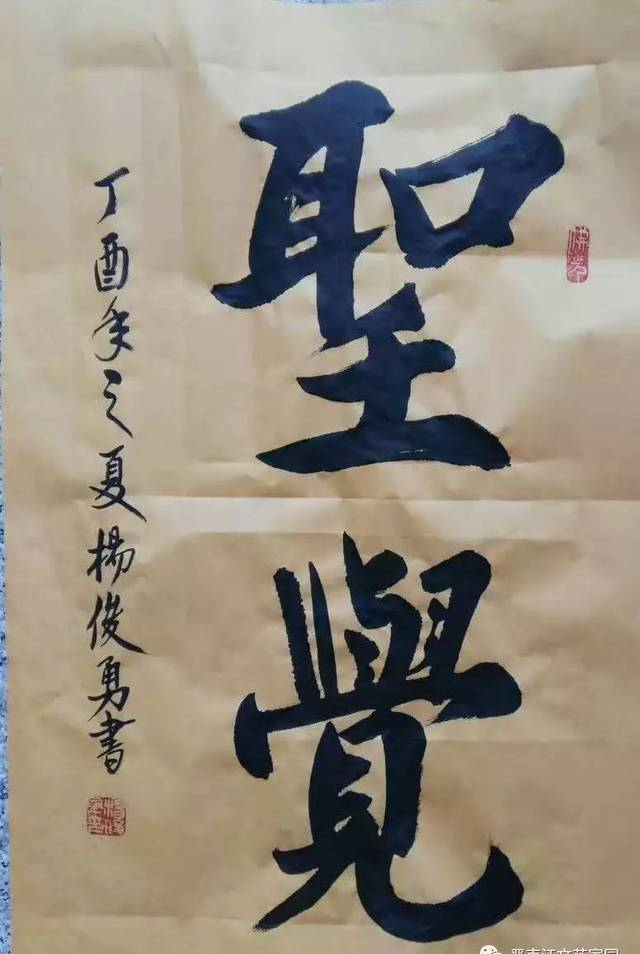 聖覺
丁酉年之夏楊俊勇書